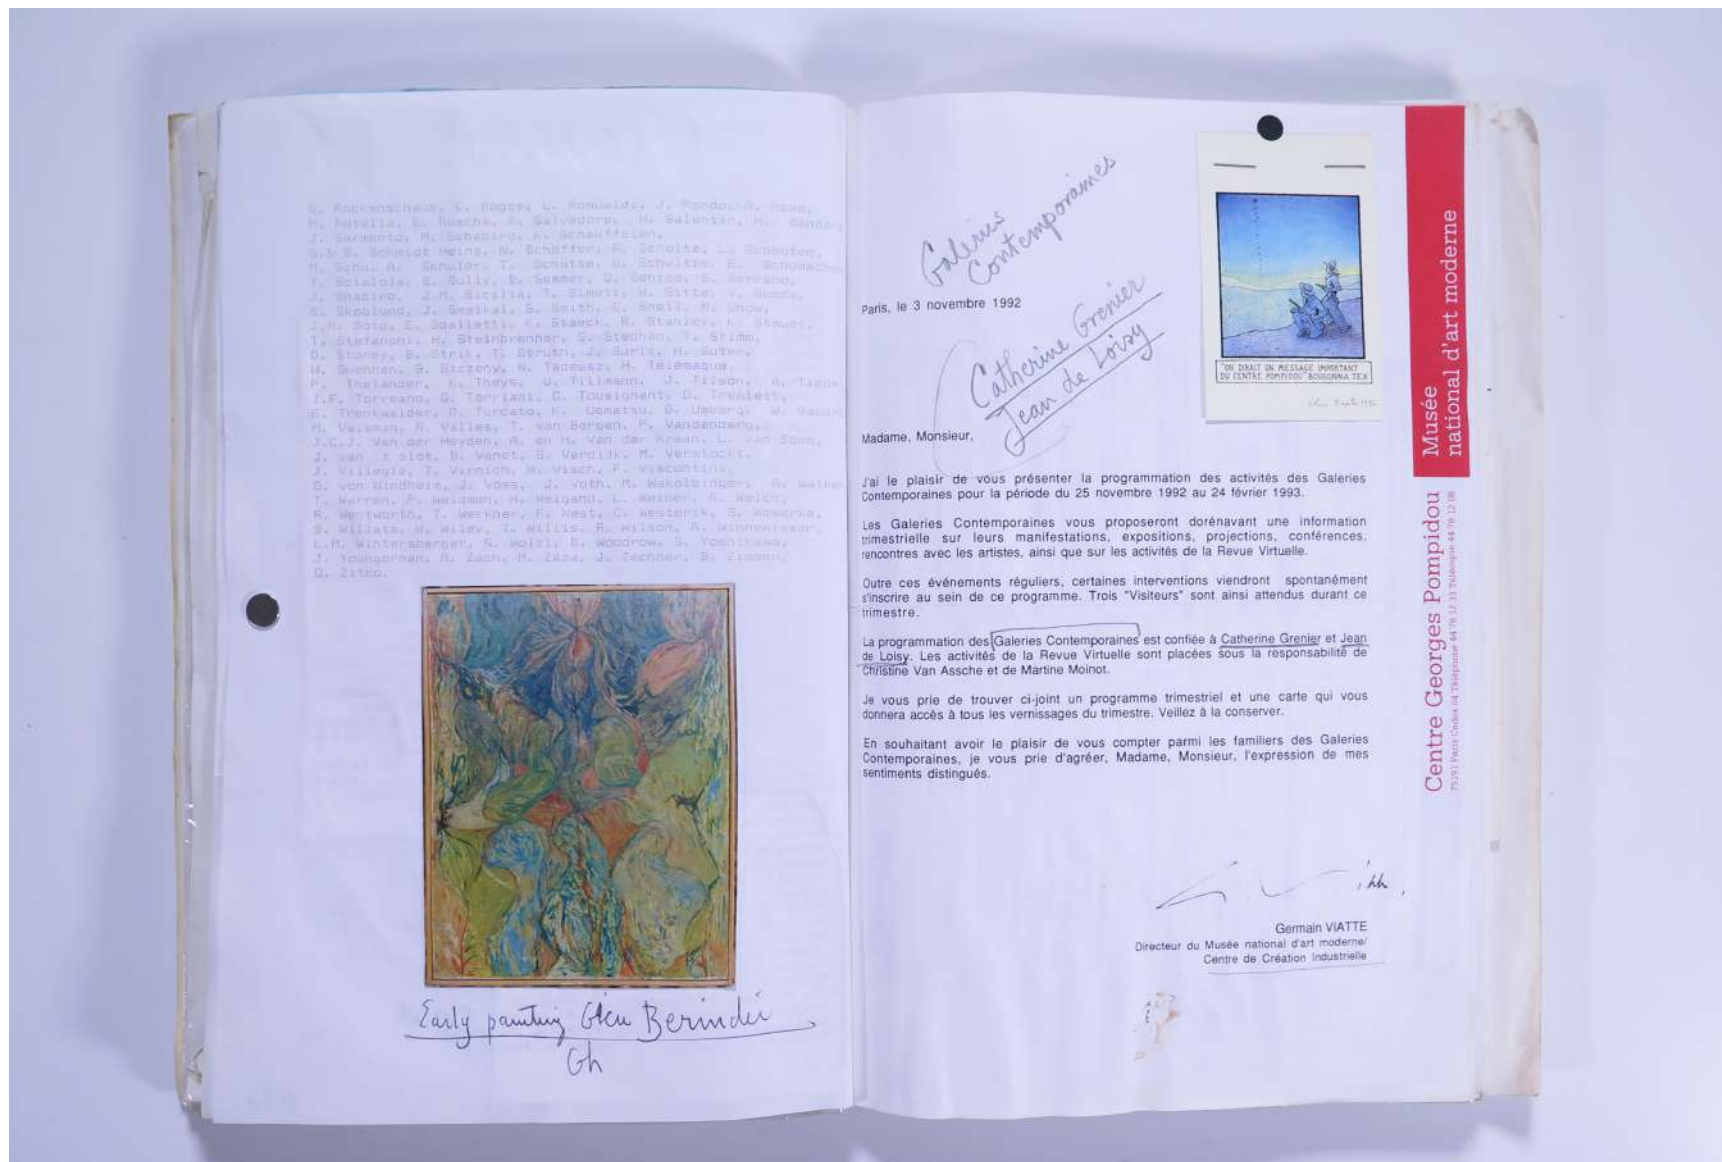 G. Rockenschaub, C. Rogge, L. Romualdz, J. Rondo, R. Rose,
M. Rotella, E. Ruscha, R. Salvadore, H. Salentin, H. Sander,
J. Sarmento, M. Schapiro, K. Schauffelen,
Schmidt Heins, N. Schoffer, R. Scholte, L. Schouten,
M. Schu, A. Schuler, T. Schütze, B. Schultze, E. Schumacher,
T. Scialoia, B. Sully, E. Sommer, D. Serrano,
J. Shapiro, J.M. Sicilia,
B. Skoglund, J. Smejkal, B. Smith, E. Snell, M. Snow,
J.R. Soto, E. Spalletti, K. Staeck, R. Stanley, K. Staudt,
T. Stefanoni, H. Steinbrenner, G. Stephan, T. Stimm,
D. Storey, B. Strik, T. Struth, J. Suris, M. Suter,
W. Swennen, G. Sczceny, N. Tadeusz, H. Telemaque,
P. Thelander, K. Theys, U. Tillmann, J. Tilson,
J.F. Torreano, G. Torriani, C. Tousignant, D. Tremlett,
E. Trenkwalder, G. Turcato, K. Uematsu, G. Umberg,
M. Vaisman, R. Valles, T. van Bergen, P. Vandenberg,
J.C.J. Van der Heyden, A. en H. Van der Kraan,
J. van 't slot, B. Venet, S. Verdijk, M. Verstockt,
J. Villegle, T. Virnich, H. Visch, F. Viscontini,
D. von Windheim, J. Voss, J. Voth, M. Wakolbinger, G. Walker
T. Warren, F. Weidman, H. Weigand, L. Weiner, R. Welch,
R. Wentworth, T. Werkner, F. West, C. Westerik, S. Wewerka,
S. Willats, W. Wiley, T. Willis, R. Wilson, R. Winnewisser,
L.M. Wintersberger, R. Wolzl, B. Woodrow, S. Yoshikawa,
J. Youngerman, R. Zach, M. Zaza, J. Zechner, B. Zimmer,
O. Zitko.
Early painting Berindei
Gh
Galeries
Contemporaines
Catherine Grenier
Jean de Loisy
"ON DIRAIT UN MESSAGE IMPORTANT
DU CENTRE POMPIDOU" BOUGONNA TEX
Musée
national d'art moderne
Centre Georges Pompidou
75191 Paris Cedex 04 Téléphone 44 78 12 33 Télécopie 44 78 12 08
Paris, le 3 novembre 1992
Madame, Monsieur,
J'ai le plaisir de vous présenter la programmation des activités des Galeries
Contemporaines pour la période du 25 novembre 1992 au 24 février 1993.
Les Galeries Contemporaines vous proposeront dorénavant une information
trimestrielle sur leurs manifestations, expositions, projections, conférences,
rencontres avec les artistes, ainsi que sur les activités de la Revue Virtuelle.
Outre ces événements réguliers, certaines interventions viendront spontanément
s'inscrire au sein de ce programme. Trois "Visiteurs" sont ainsi attendus durant ce
trimestre.
La programmation des Galeries Contemporaines est confiée à Catherine Grenier et Jean
de Loisy. Les activités de la Revue Virtuelle sont placées sous la responsabilité de
Christine Van Assche et de Martine Moinot.
Je vous prie de trouver ci-joint un programme trimestriel et une carte qui vous
donnera accès à tous les vernissages du trimestre. Veillez à la conserver.
En souhaitant avoir le plaisir de vous compter parmi les familiers des Galeries
Contemporaines, je vous prie d'agréer, Madame, Monsieur, l'expression de mes
sentiments distingués.
Germain VIATTE
Directeur du Musée national d'art moderne/
Centre de Création Industrielle